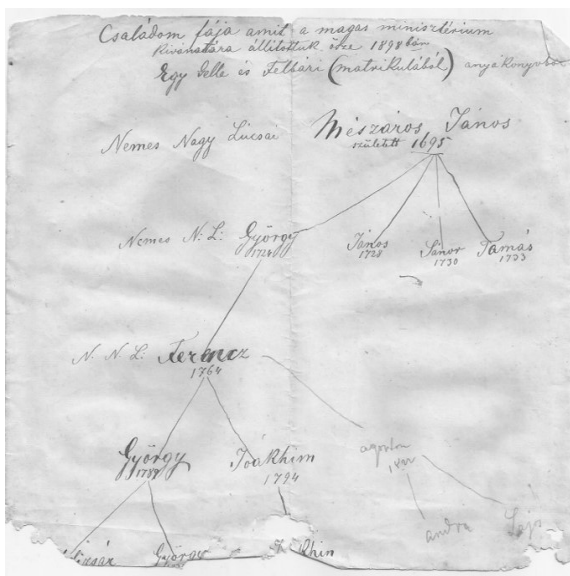 Családom fája amit a magas minisztérium
kivánatára állitottuk össze 1898 ban
Egy Delle és Feltári (matrikulából) anyakönyvből
Nemes Nagy Lúcsai Mészáros János
született 1695
Nemes N. L. György János Sándor Tamás
1724 1728 1730 1733
N. N. L. Ferencz
1764
György Joákhim agoston
1789 1794
andra Lajos
György